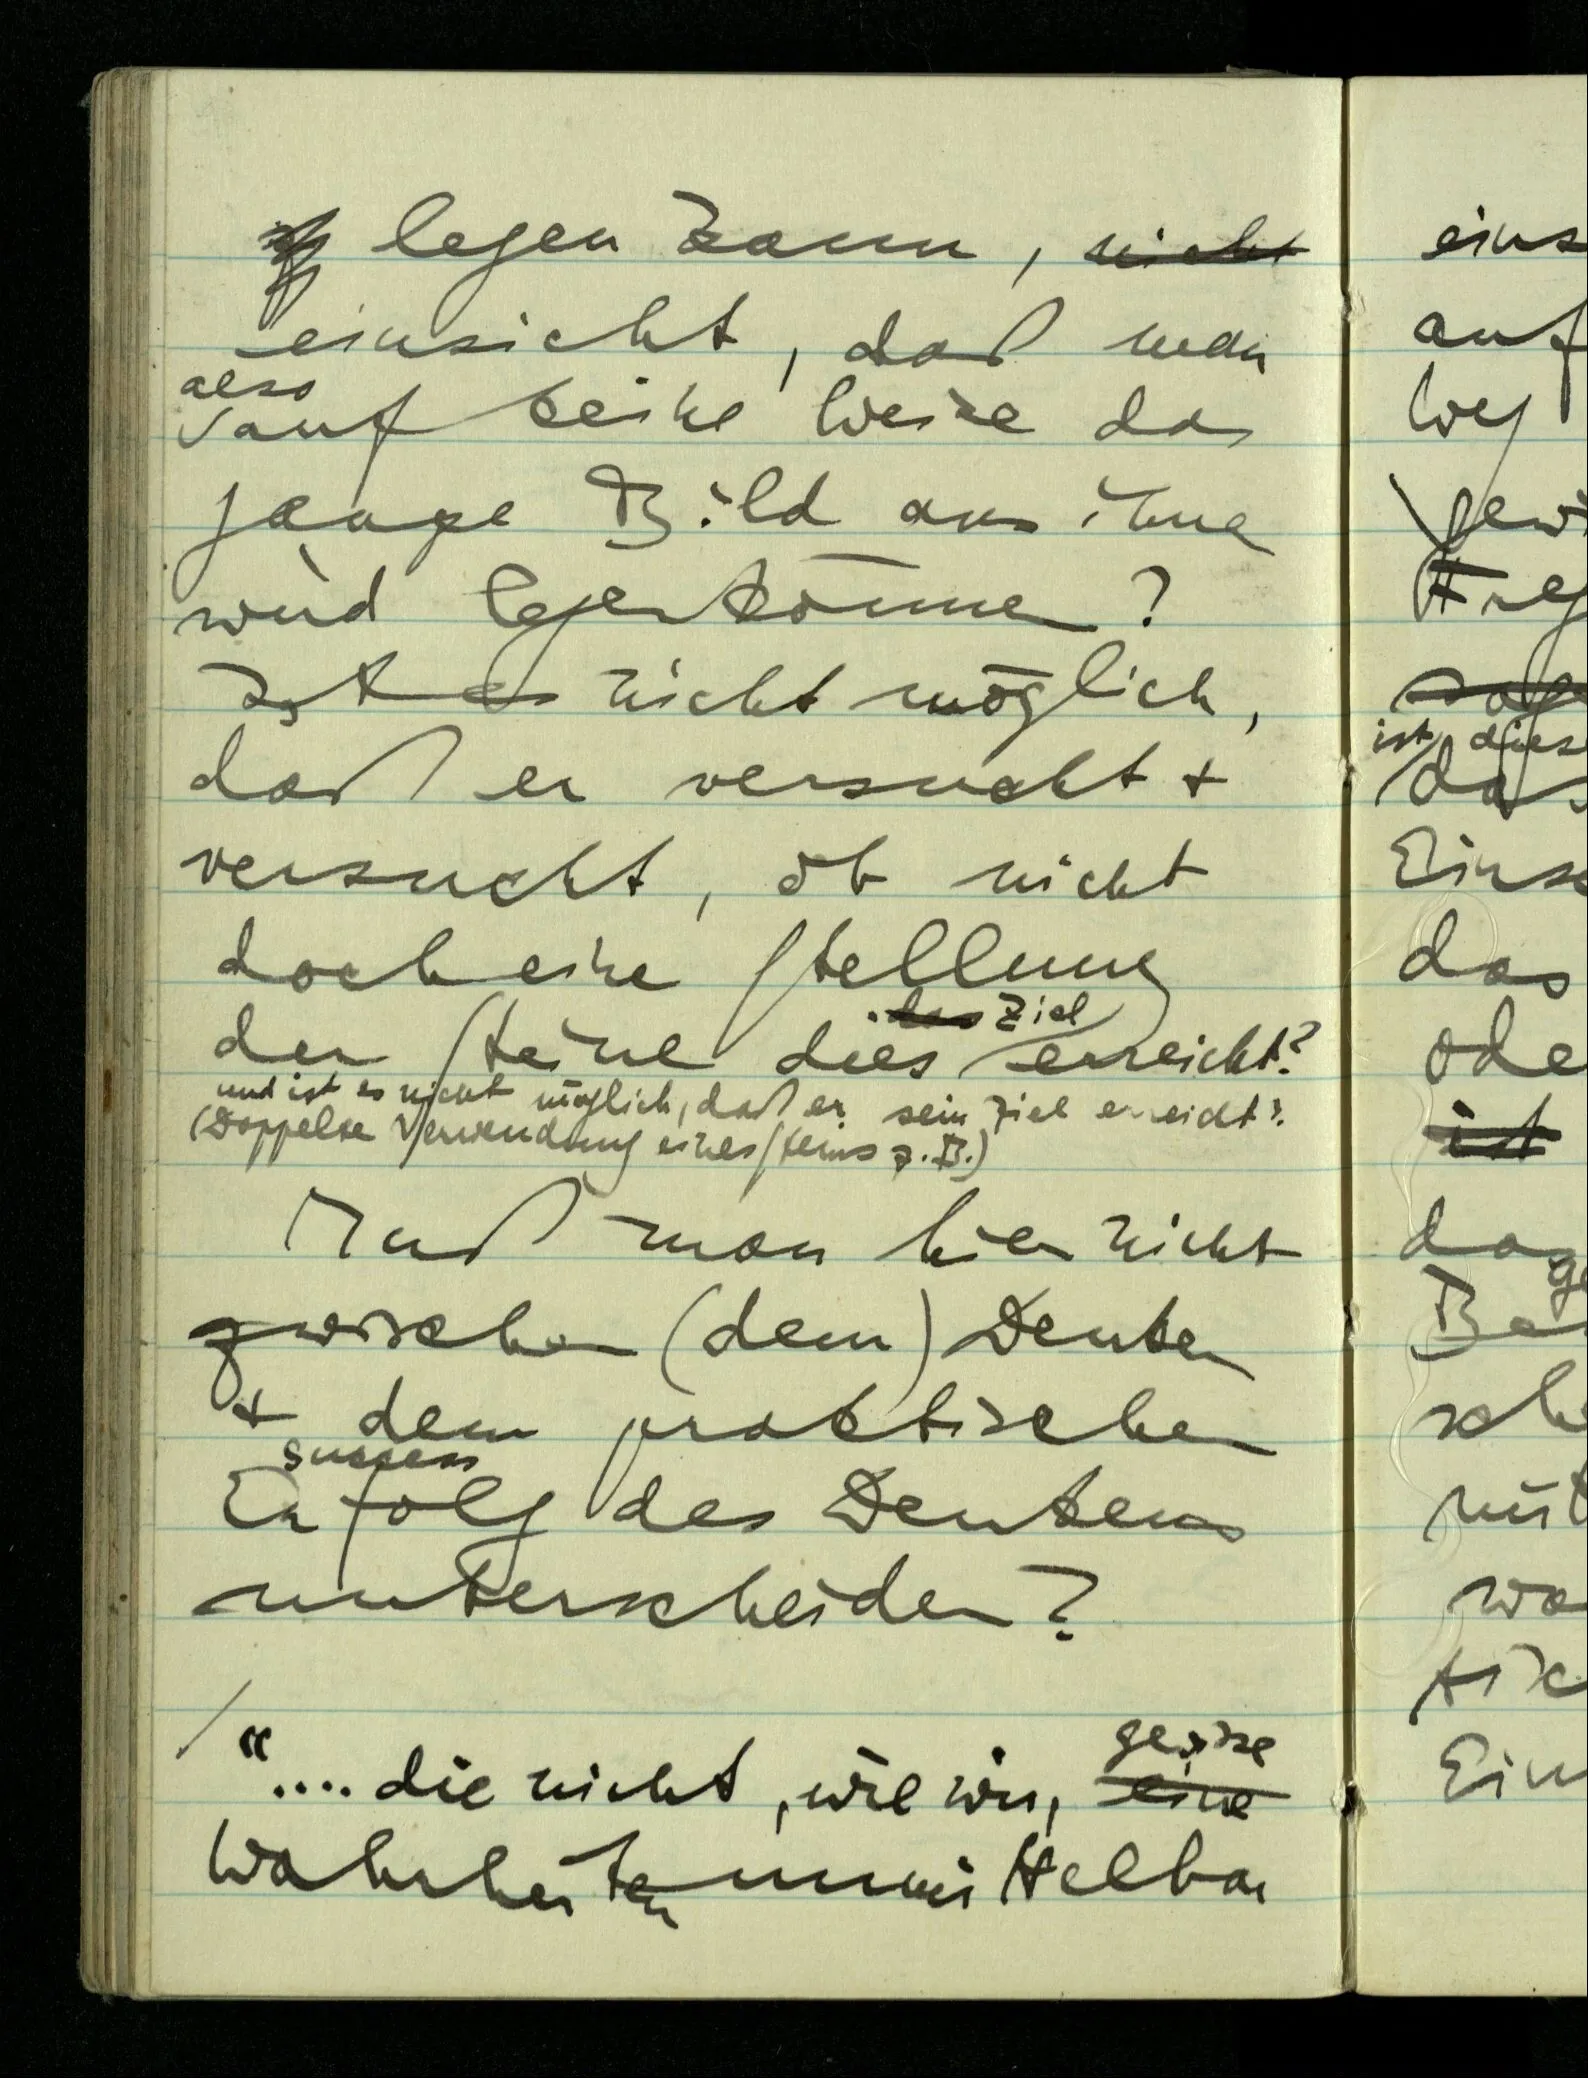 legen kann, nicht
einsicht, daß man
also
auf keine Weise das
ganze Bild aus ihne
wird legen könne?
Ist es nicht möglich,
daß er versucht +
versucht, ob nicht
doch eine Stellung
das Ziel
der Steine dies erreicht?
und ist es nicht möglich, daß er sein Ziel erreicht?
(Doppelte Verwendung eines Steins z.B.)
Muß man hier nicht
zwischen (dem) Denken
+ dem praktischen
success
Erfolg des Denkens
unterscheiden?
/
gewisse
“.... die nicht, wie wir, eine
Wahrheiten unmittelbar
eins
auf
Weg
gewi
ist dies
das
Eins
das
ode
ist
da
ge
sch
mit
wa
tisc
Ein